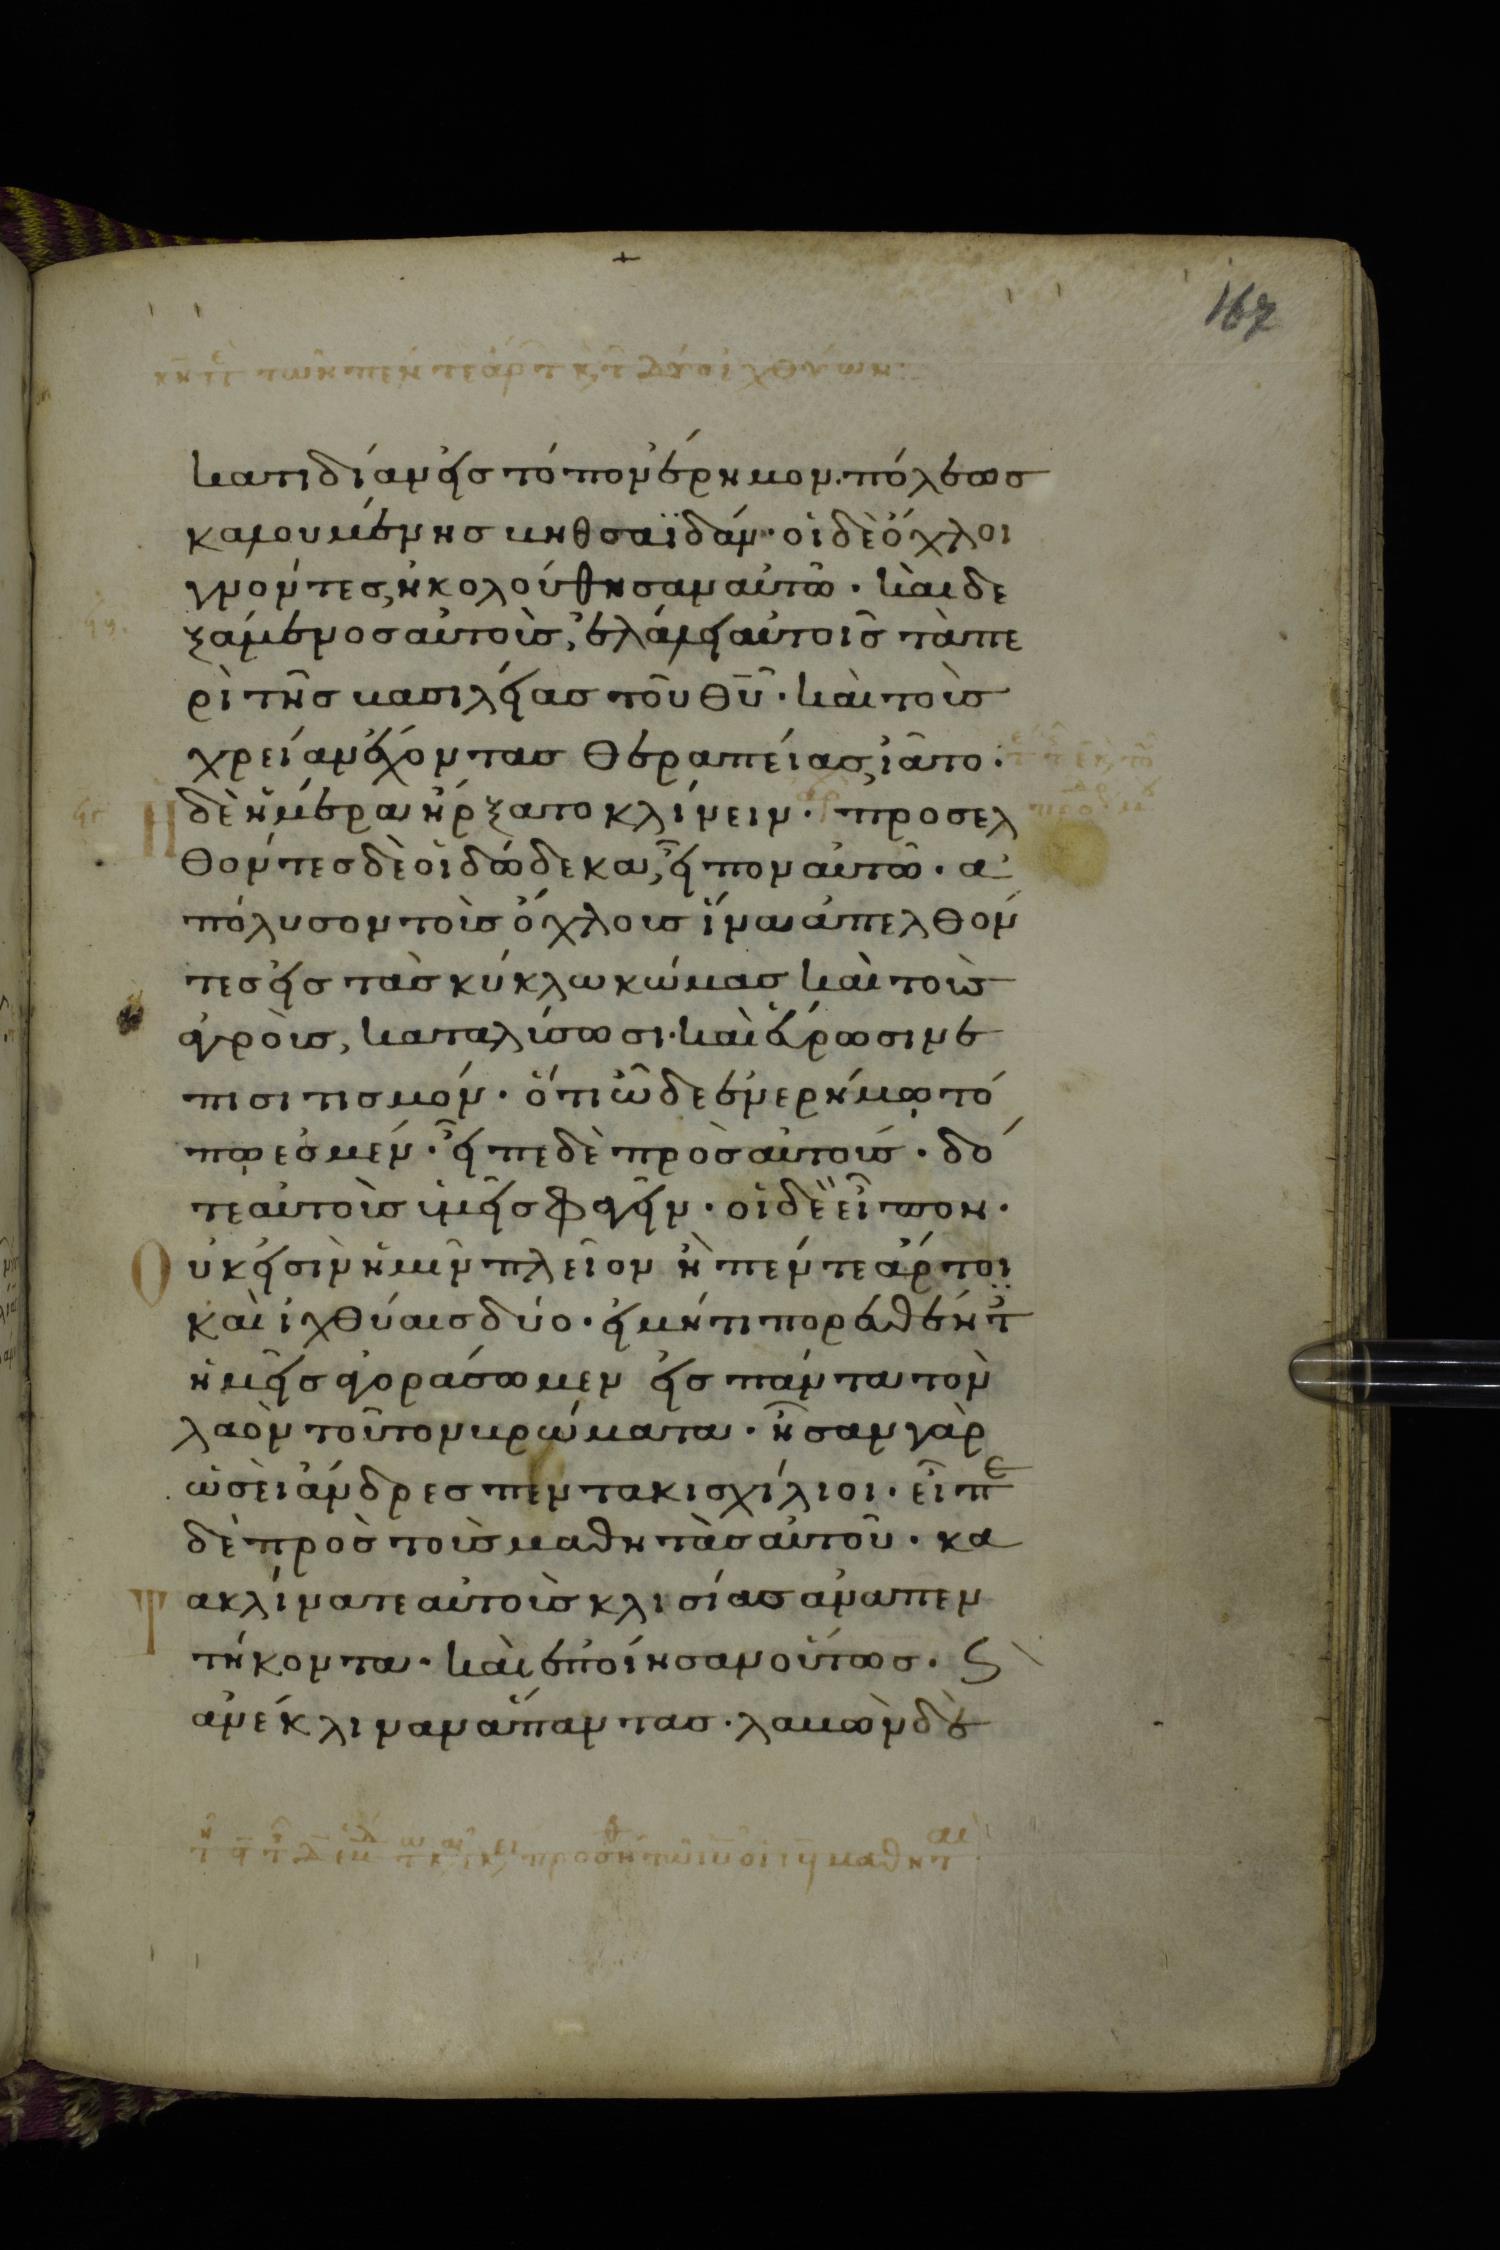 167
κατιδίαν εἰς τόπον ἔρημον· πόλεως
καλουμένης βηθσαϊδάν· οἱ δὲ ὄχλοι
γνόντες, ἠκολούθησαν αὐτῶ· καὶ δε
ξάμενος αὐτοὺς, ἐλάλει αὐτοῖς τὰ πε
ρὶ τῆς βασιλείας τοῦ θ̅υ̅· καὶ τοὺς
χρείαν ἔχοντας θεραπείας, ἰᾶτο·
Η δὲ ἡμέρα ἤρξατο κλίνειν· προσελ
θόντες δὲ οἱ δώδεκα, εἶπον αὐτῶ· ἀ
πόλυσον τοὺς ὄχλους ἵνα ἀπελθόν
τες εἰς τὰς κύκλω κώμας καὶ τοὺς
ἀγροὺς, καταλύσωσι· καὶ εὕρωσιν ἐ
πισιτισμόν· ὅτι ὧδε ἐν ἐρήμῳ τό
πῳ ἐσμέν· εἶπε δὲ πρὸς αὐτούς· δό
τε αὐτοῖς ὑμεῖς φαγεῖν· οἱ δὲ εἶπον·
Ουκ εἰσὶν ἡμῖν πλεῖον ἢ πέντε ἄρτοι
καὶ ἰχθύαις δύο· εἰ μήτι πορευθέντ
ἡμεῖς ἀγοράσωμεν εἰς πάντα τὸν
λαὸν τοῦτον βρώματα· ἦσαν γὰρ
ὡσεὶ ἄνδρες πεντακισχίλιοι· εἶπε
δὲ πρὸς τοὺς μαθητὰς αὐτοῦ· κα
Τακλίνατε αὐτοὺς κλισίας ἀνὰ πεν
τήκοντα· καὶ ἐποίησαν οὕτως· ϗ
ἀνέκλιναν ἅπαντας· λαβὼν δὲ